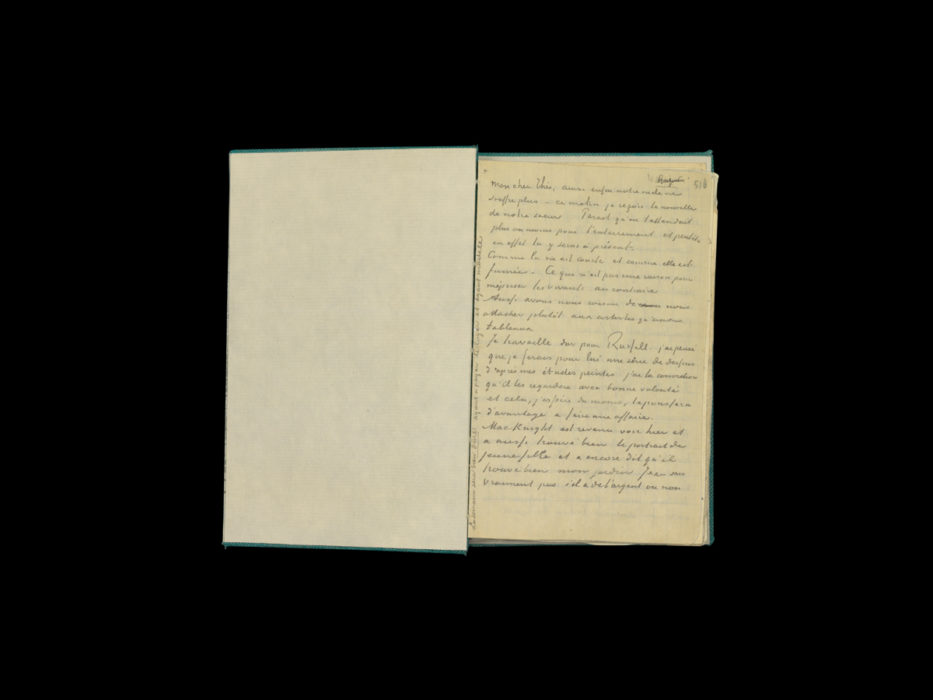 518
mon cher Théo, ainsi enfin notre oncle ne
souffre plus – ce matin je reçois la nouvelle
de notre soeur Parait qu'on t'attendait
plus ou moins pour l'enterrement et peutêtre
en effet tu y seras à présent.
Comme la vie est courte et comme elle est
fumée – Ce qui n'est pas une raison pour
mépriser les vivants au contraire.
Aussi avons nous raison de nous
attacher plutôt aux artistes qu'aux
tableaux
Je travaille dur pour Russell. j'ai pensé
que je ferais pour lui une série de dessins
d'après mes études peintes j'ai la conviction
qu'il les regardera avec bonne volonté
et cela, j'espère du moins, le poussera
d'avantage à faire une affaire.
MacKnight est revenu voir hier et
a aussi trouvé bien le portrait de
jeune fille et a encore dit qu'il
trouve bien mon jardin. Je ne sais
vraiment pas s'il a de l'argent ou non